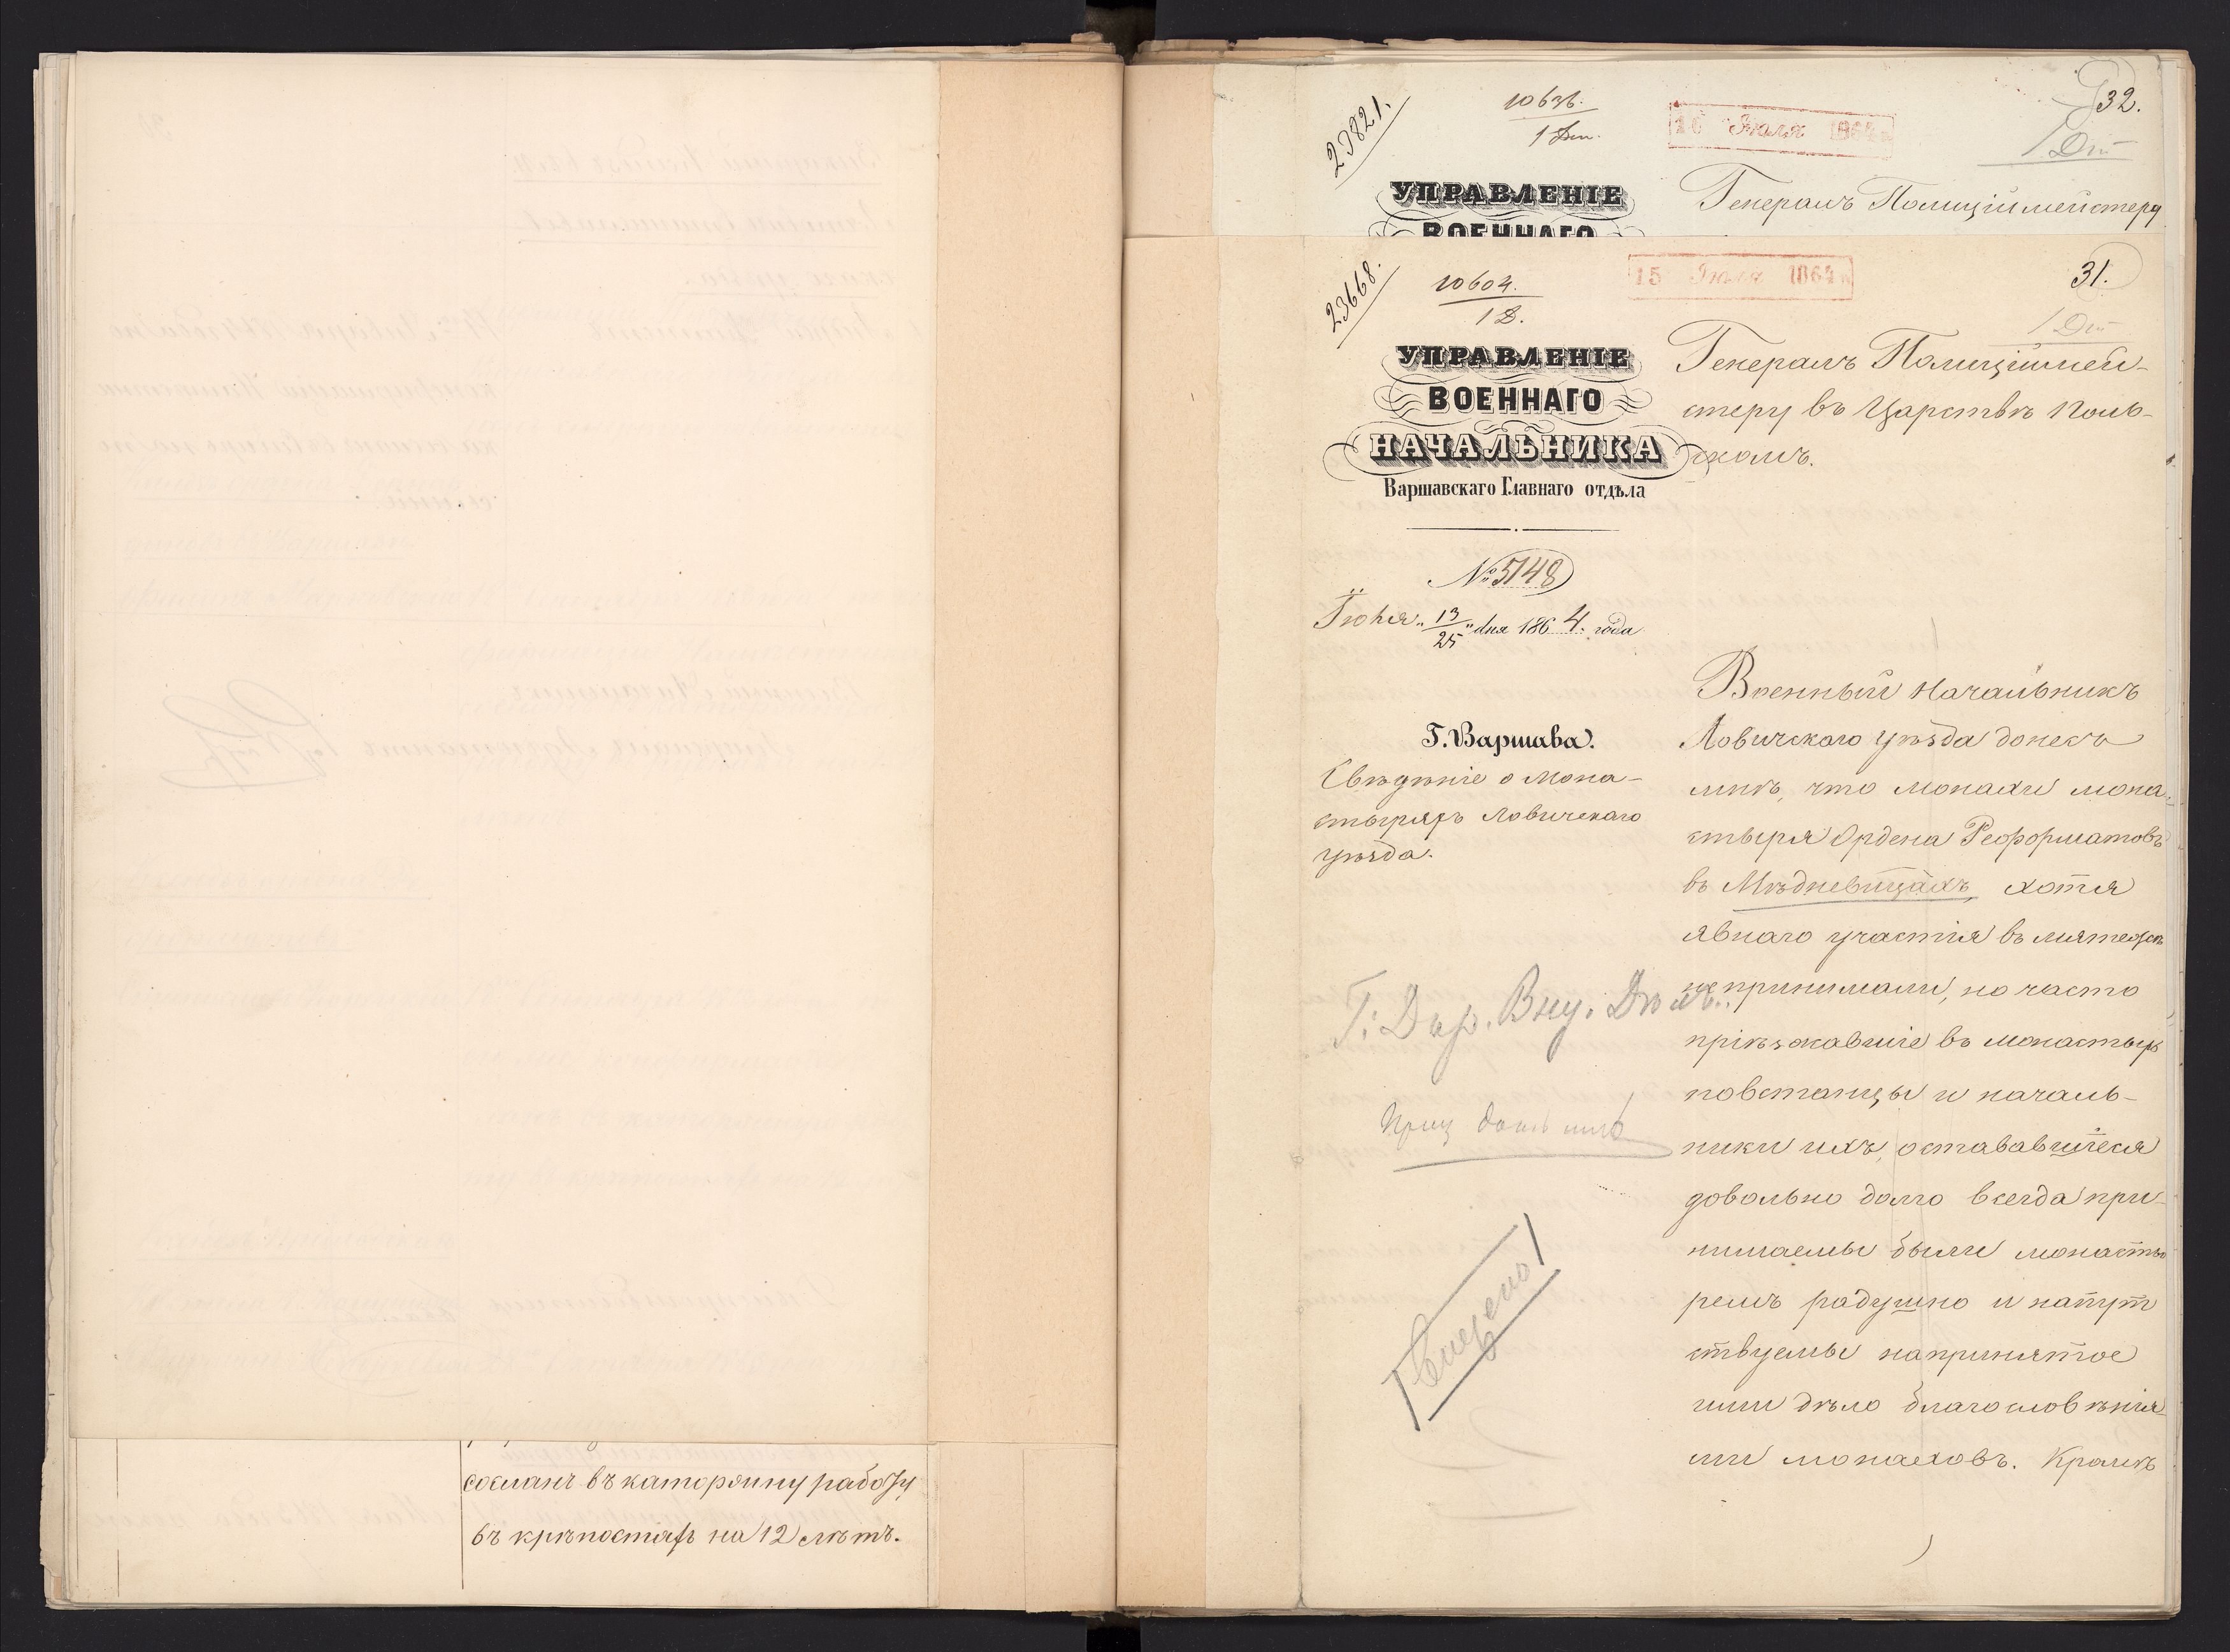 сосланъ въ каторжную работу
въ крѣпостяхъ на 12 лѣтъ.
23821.
10636.
1 Дт.
16 Іюля 1864
32.
1 Дт
УПРАВЛЕНІЕ
ВОЕННАГО
Генералъ Полиціймейстеру
23668.
10604.
1 Д.
15 Іюля 1864
31.
1 Дт
УПРАВЛЕНІЕ
ВОЕННАГО
НАЧАЛЬНИКА
Варшавскаго Главнаго отдѣла
№ 5148
Іюля „13/25" дня 1864. года
Г. Варшава.
Свѣдѣніе о мона-
стыряхъ Ловичскаго
уѣзда.
Г: Дир. Вну. Дѣлъ.
Генералъ Полиціймей-
стеру въ Царствѣ Поль-
скомъ.
Военный Начальникъ
Ловичскаго уѣзда донесъ
мнѣ, что монахи мона-
стыря Ордена Реформатовъ
въ Мѣдневицахъ, хотя
явнаго участія въ мятежѣ
не принимали, но часто
пріѣзжавшіе въ монастырь
повстанцы и началь-
ники ихъ, остававшіеся
довольно долго всегда при-
нимаемы были монасты-
ремъ радушно и напут
ствуемы на принятое
ими дѣло благословѣнія-
ми монаховъ. Кромѣ